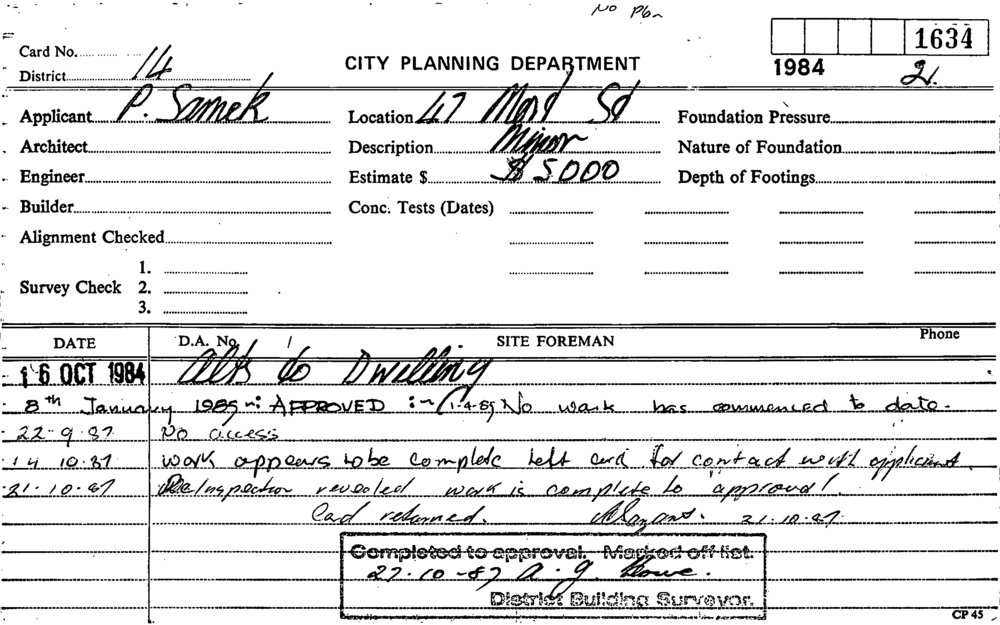 No Pbn
Card No. 1634
District 14 CITY PLANNING DEPARTMENT 1984 2.
Applicant P. Samek Location 47 St Foundation Pressure
Architect Description Minor Nature of Foundation
Engineer Estimate $ $5000 Depth of Footings
Builder Conc. Tests (Dates)
Alignment Checked
1.
Survey Check 2.
3.
DATE D.A. No. SITE FOREMAN Phone
16 OCT 1984 Alts to Dwelling
8th January 1985 ~: APPROVED :~ (1.4.85) No work has commenced to date.
22-9.87 No access
14 10.87 work appears to be complete left card for contact with applicant.
21.10.87 Re/Inspection revealed work is complete to approval.
Card returned. 21.10.87
Completed to approval. Marked off list.
27-10-87 A. G. Howe.
District Building Surveyor.
CP 45